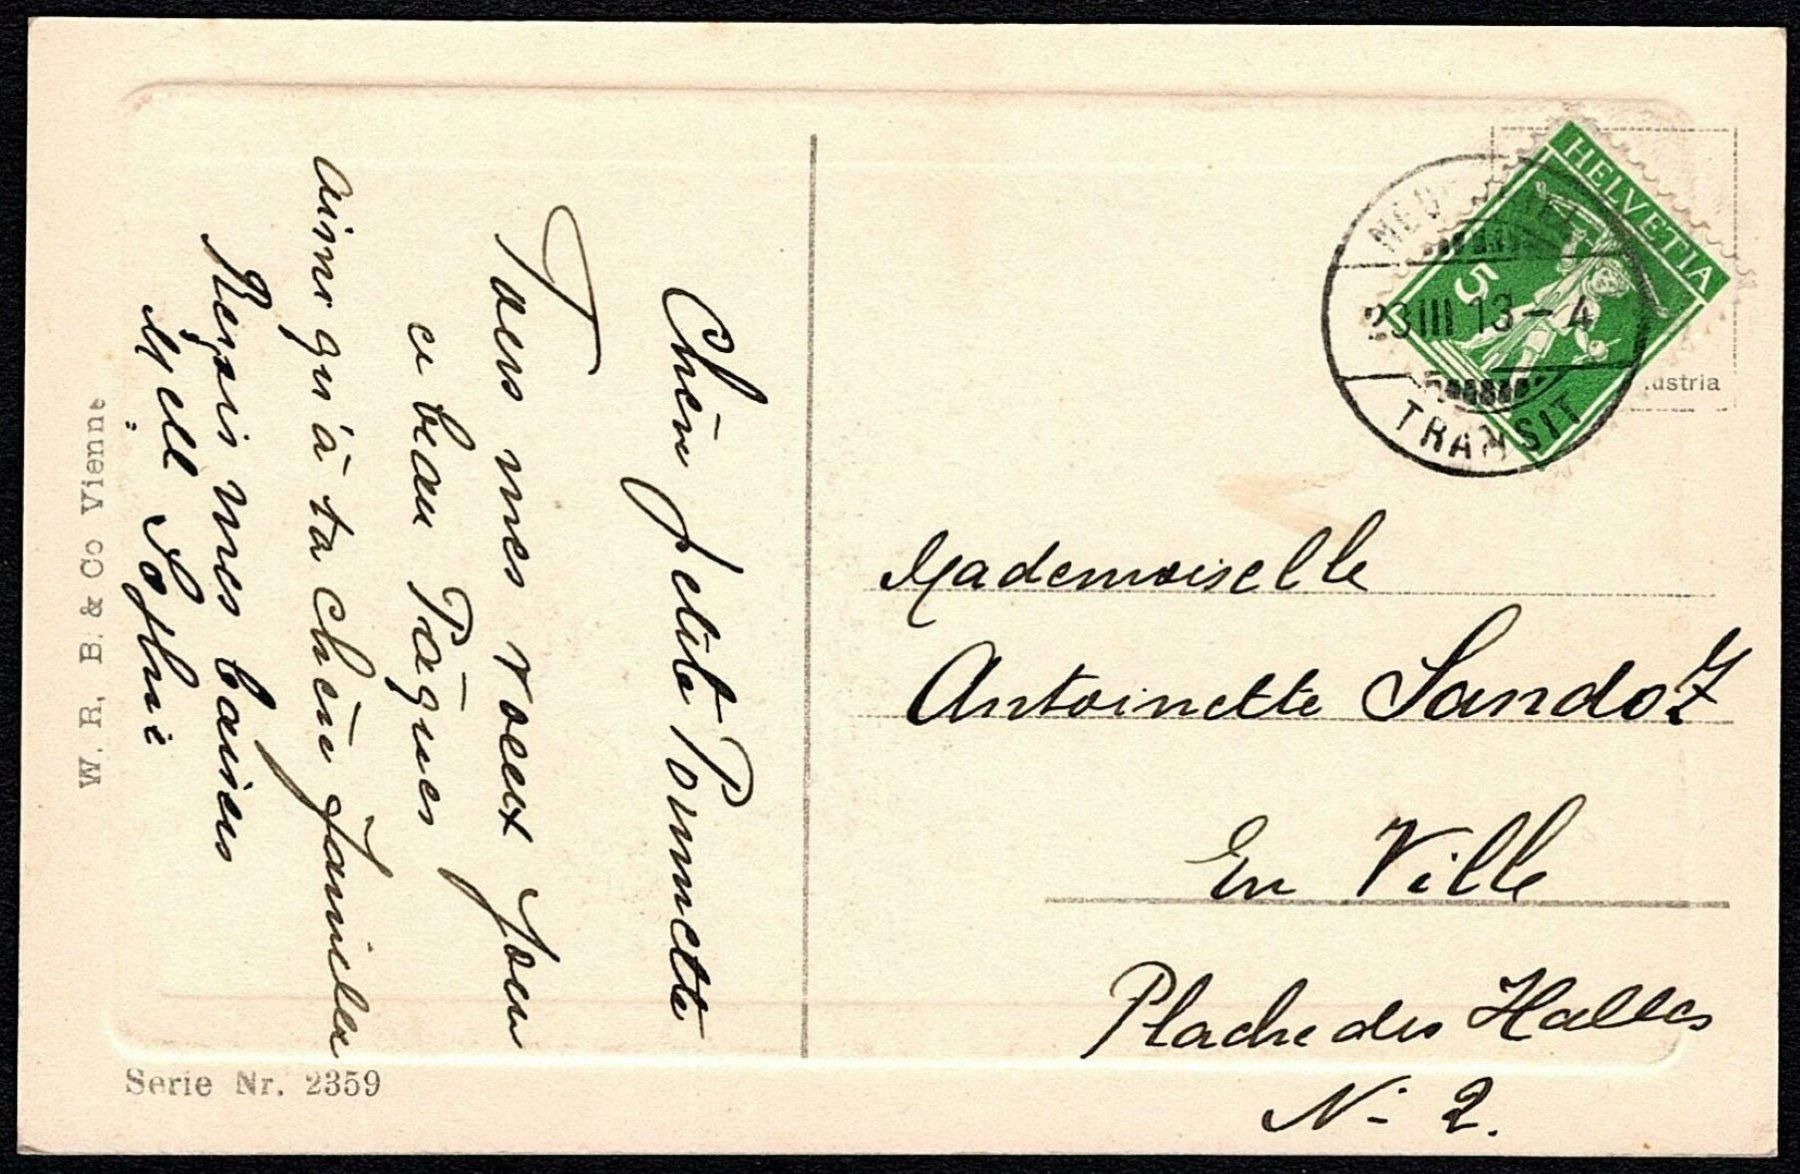 Chère petite Pounette
Tous mes voeux pour
ce beau Pâques
ainsi qu'à ta chère famille
Reçois mes baisers
Mell Sophie
W. R. B. & Co Vienne
Serie Nr. 2359
HELVETIA
5
23 III 13 – 4
TRANSIT
ustria
Mademoiselle
Antoinette Sandoz
En Ville
Plache des Halles
N- 2.